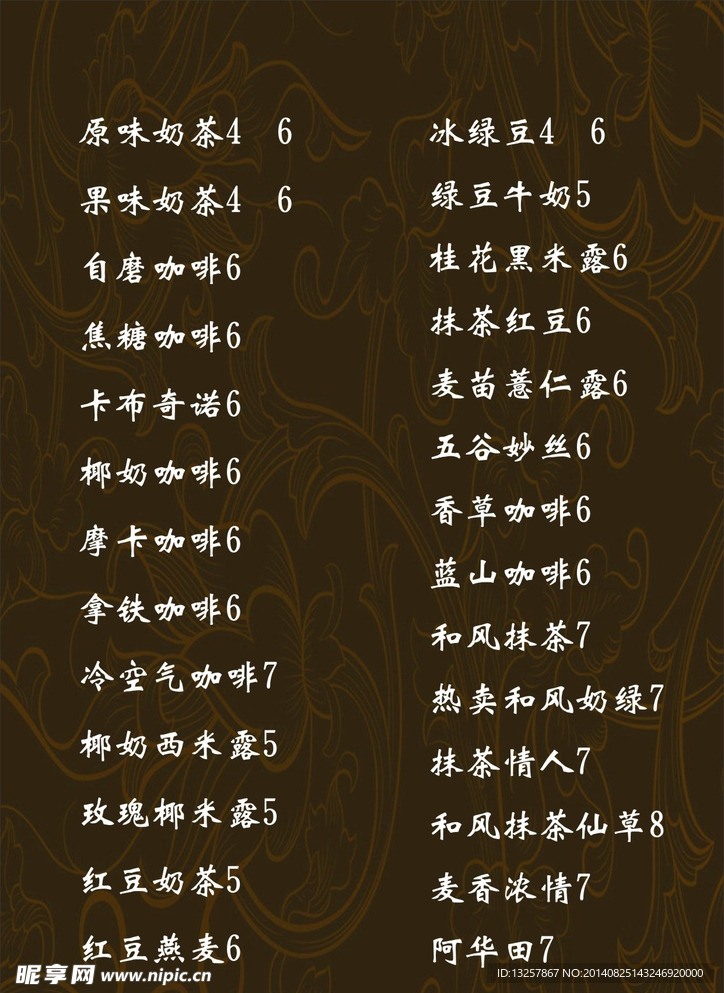 原味奶茶4 6
果味奶茶4 6
自磨咖啡6
焦糖咖啡6
卡布奇诺6
椰奶咖啡6
摩卡咖啡6
拿铁咖啡6
冷空气咖啡7
椰奶西米露5
玫瑰椰米露5
红豆奶茶5
红豆燕麦6
冰绿豆4 6
绿豆牛奶5
桂花黑米露6
抹茶红豆6
麦苗薏仁露6
五谷妙丝6
香草咖啡6
蓝山咖啡6
和风抹茶7
热卖和风奶绿7
抹茶情人7
和风抹茶仙草8
麦香浓情7
阿华田7
昵享网 www.nipic.cn
ID:13257867 NO:20140825143246920000